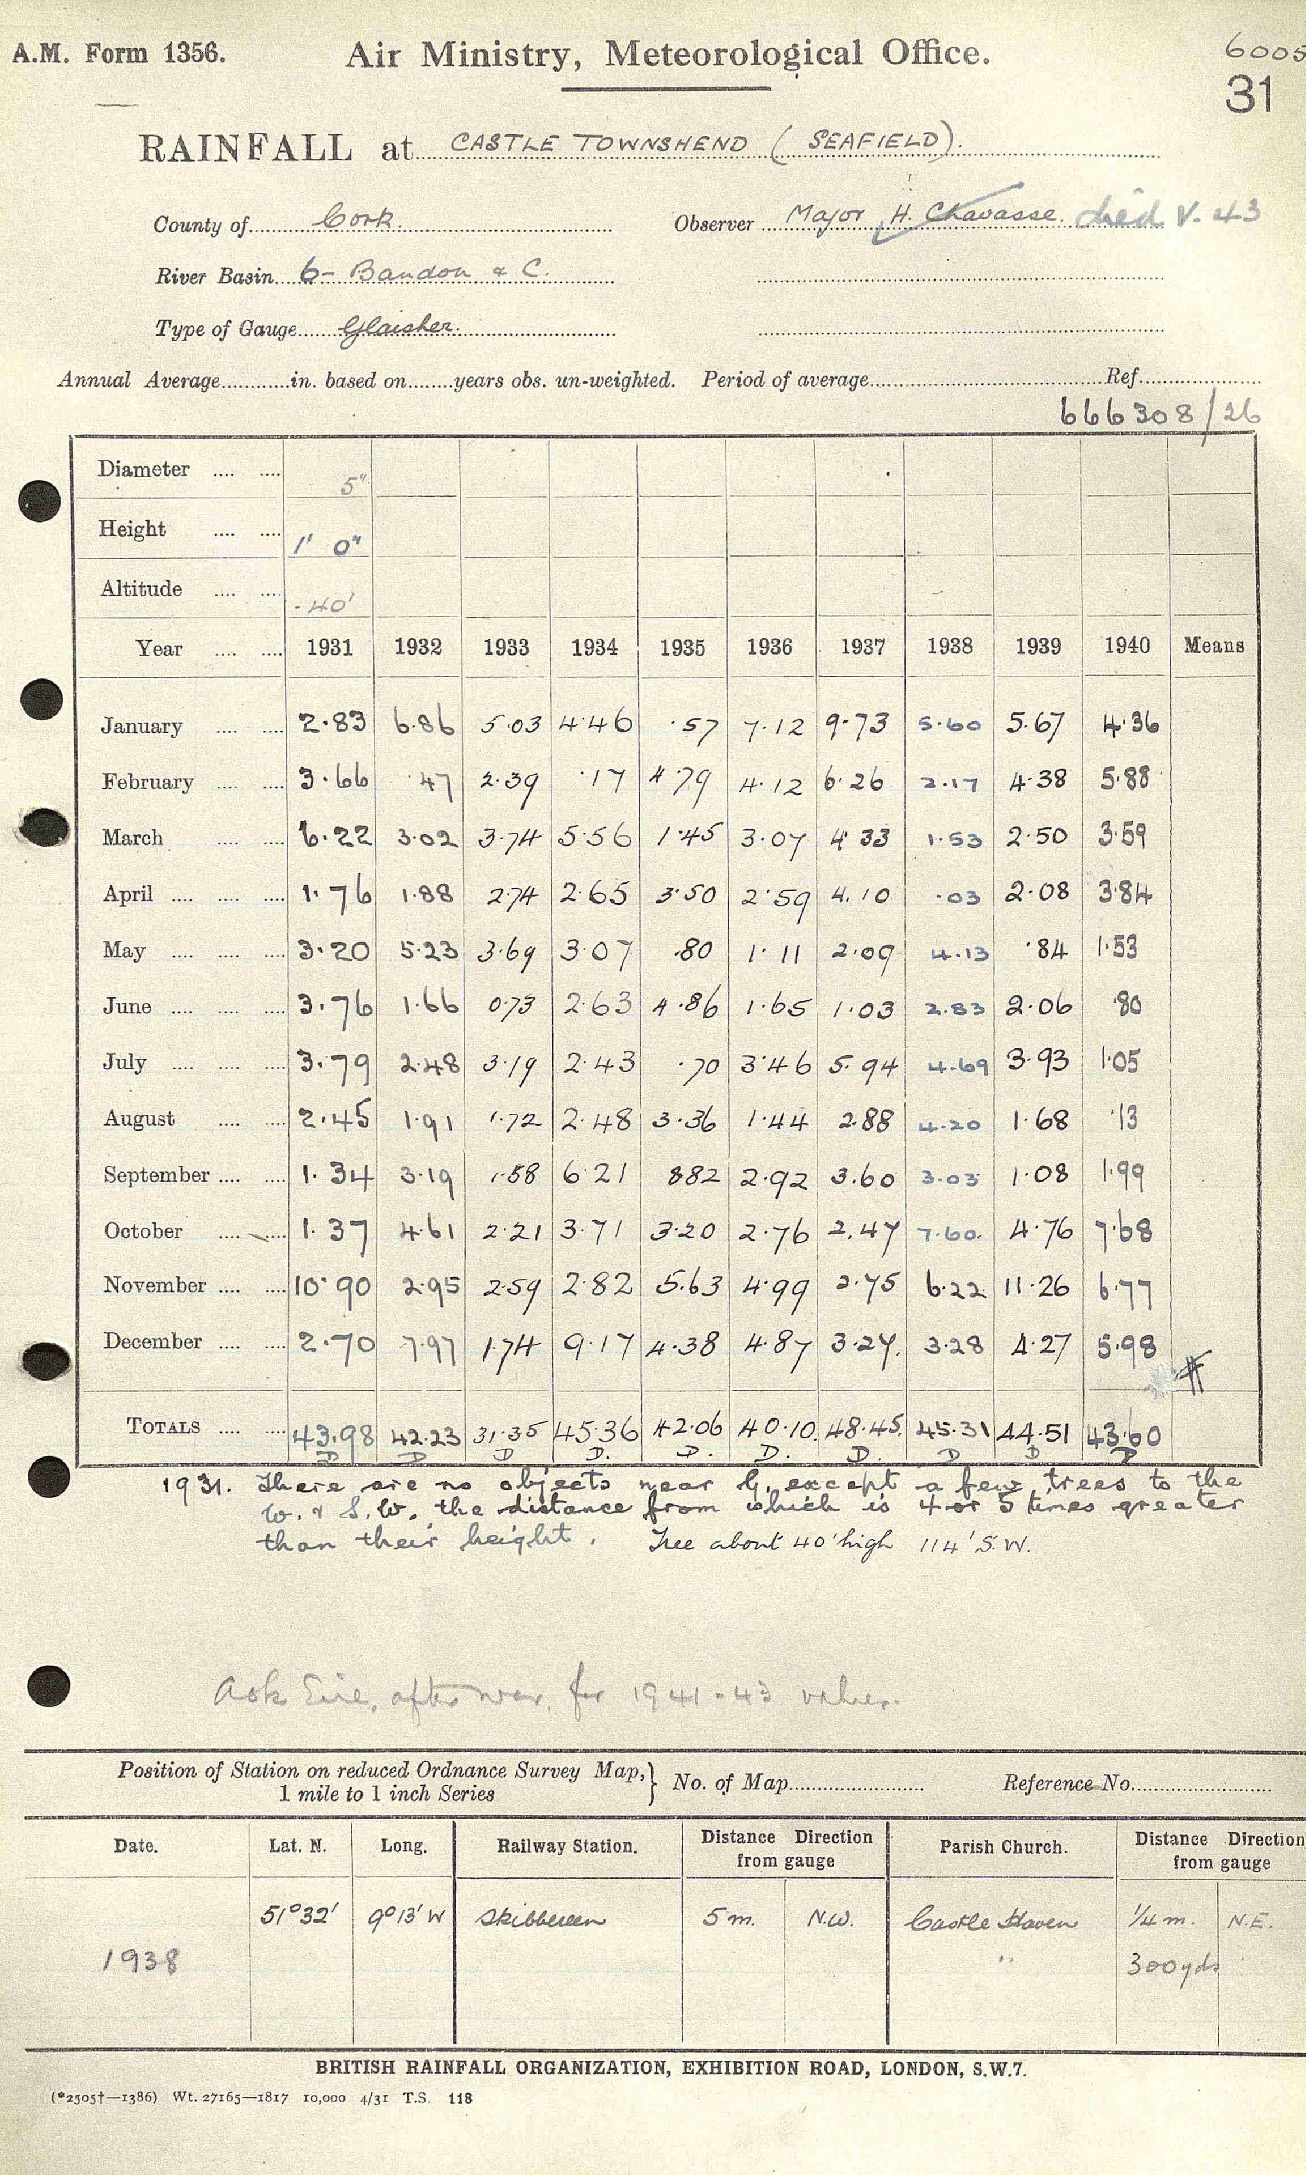 A.M. Form 1356. Air Ministry, Meteorological Office. 6005
31
RAINFALL at CASTLE TOWNSHEND (SEAFIELD).
County of Cork. Observer Major H. Chavasse. died V. 43
River Basin 6- Bandon & C.
Type of Gauge Glaisher.
Annual Average............in. based on........years obs. un-weighted. Period of average............Ref............
666308/26
Diameter .... .... 5"
Height .... .... 1' 0"
Altitude .... .... 40'
Year .... .... 1931 1932 1933 1934 1935 1936 1937 1938 1939 1940 Means
January .... .... 2.83 6.86 5.03 4.46 .57 7.12 9.73 5.60 5.67 4.36
February .... .... 3.66 .47 2.39 .17 4.79 4.12 6.26 2.17 4.38 5.88
March .... .... 6.22 3.02 3.74 5.56 1.45 3.07 4.33 1.53 2.50 3.59
April .... .... .... 1.76 1.88 2.74 2.65 3.50 2.59 4.10 .03 2.08 3.84
May .... .... .... 3.20 5.23 3.69 3.07 .80 1.11 2.09 4.13 .84 1.53
June .... .... .... 3.76 1.66 0.73 2.63 4.86 1.65 1.03 2.83 2.06 .80
July .... .... .... 3.79 2.48 3.19 2.43 .70 3.46 5.94 4.69 3.93 1.05
August .... .... 2.45 1.91 1.72 2.48 3.36 1.44 2.88 4.20 1.68 .13
September .... .... 1.34 3.19 1.58 6.21 8.82 2.92 3.60 3.03 1.08 1.99
October .... .... 1.37 4.61 2.21 3.71 3.20 2.76 2.47 7.60 4.76 7.68
November .... .... 10.90 2.95 2.59 2.82 5.63 4.99 2.75 6.22 11.26 6.77
December .... .... 2.70 7.97 1.74 9.17 4.38 4.87 3.27 3.28 4.27 5.98
TOTALS .... .... 43.98 42.23 31.35 45.36 42.06 40.10 48.45 45.31 44.51 43.60
D D D D. D. D. D. D D D
1931. There are no objects near G, except a few trees to the
W. & S.W. the distance from which is 4 or 5 times greater
than their height. Tree about 40' high 114' S.W.
Ask Eire, after war, for 1941-43 values.
Position of Station on reduced Ordnance Survey Map,
1 mile to 1 inch Series } No. of Map............ Reference No............
Date. Lat. N. Long. Railway Station. Distance Direction from gauge Parish Church. Distance Direction from gauge
51°32' 9°13' W Skibbereen 5 m. N.W. Castle Haven 1/4 m. N.E.
1938 " 300 yds
BRITISH RAINFALL ORGANIZATION, EXHIBITION ROAD, LONDON, S.W.7.
(*2505†—1386) Wt. 27165—1817 10,000 4/31 T.S. 118